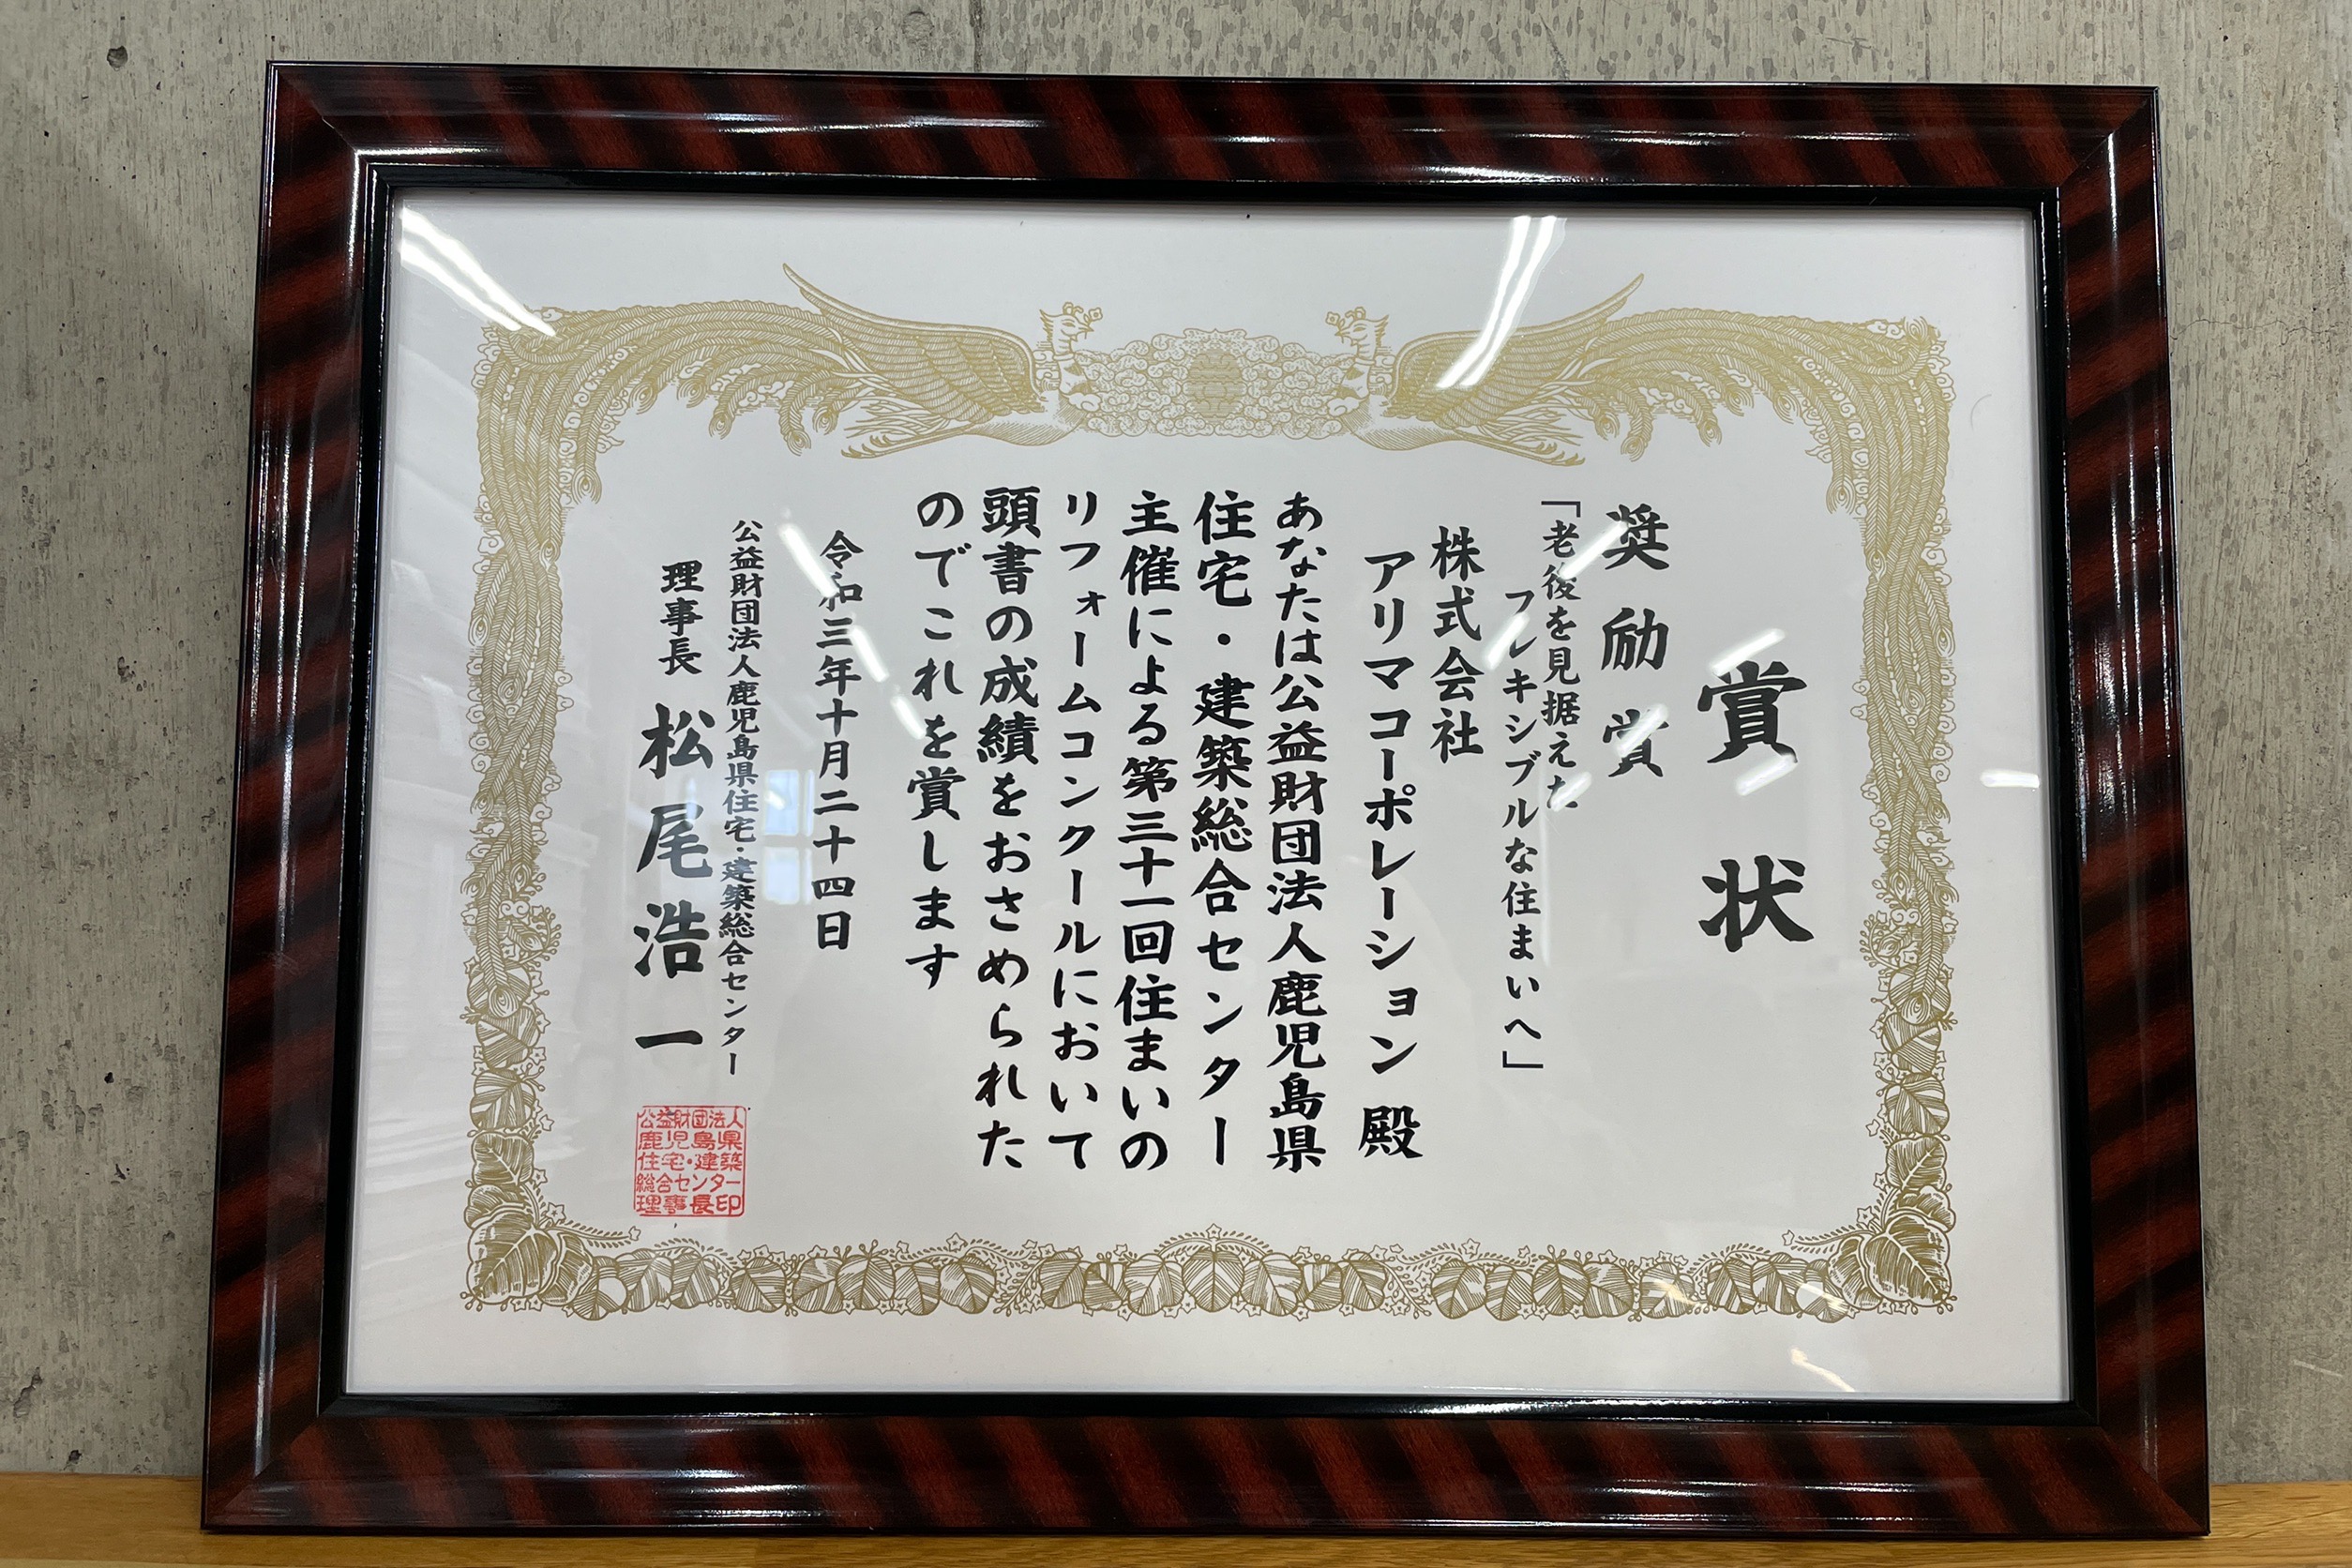 賞状
奨励賞
「老後を見据えた
フレキシブルな住まいへ」
株式会社
アリマコーポレーション 殿
あなたは公益財団法人鹿児島県
住宅・建築総合センター
主催による第三十一回住まいの
リフォームコンクールにおいて
頭書の成績をおさめられた
のでこれを賞します
令和三年十月二十四日
公益財団法人鹿児島県住宅・建築総合センター
理事長 松尾浩一
公益財団法人
鹿児島県
住宅・建築
総合センター
理事長印